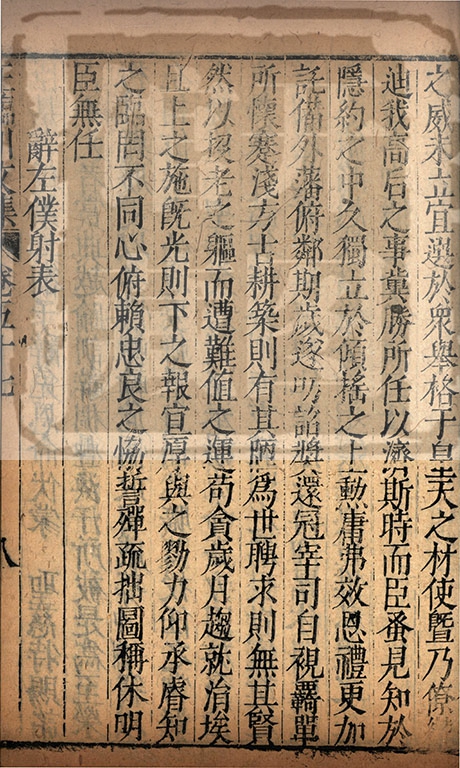 之威未立宜選於衆舉格于皇天之材使暨乃僚
迪我高后之事冀勝所任以濟斯時而臣蚤見知於
隱約之中久獨立於傾搖之上勳庸弗效恩禮更加
託備外藩俯鄰期歲遂叨詔獎還冠宰司自視羇單
所懷蹇淺方古耕築則有其陋爲世聘求則無其賢
然以衰老之軀而遭難值之運苟貪歲月趨就治埃
且上之施旣光則下之報宜厚與之勠力仰承睿知
之臨罔不同心俯賴忠良之協誓殫疏拙圖稱休明
臣無任
辭左僕射表
王臨川文集 卷五十七 八